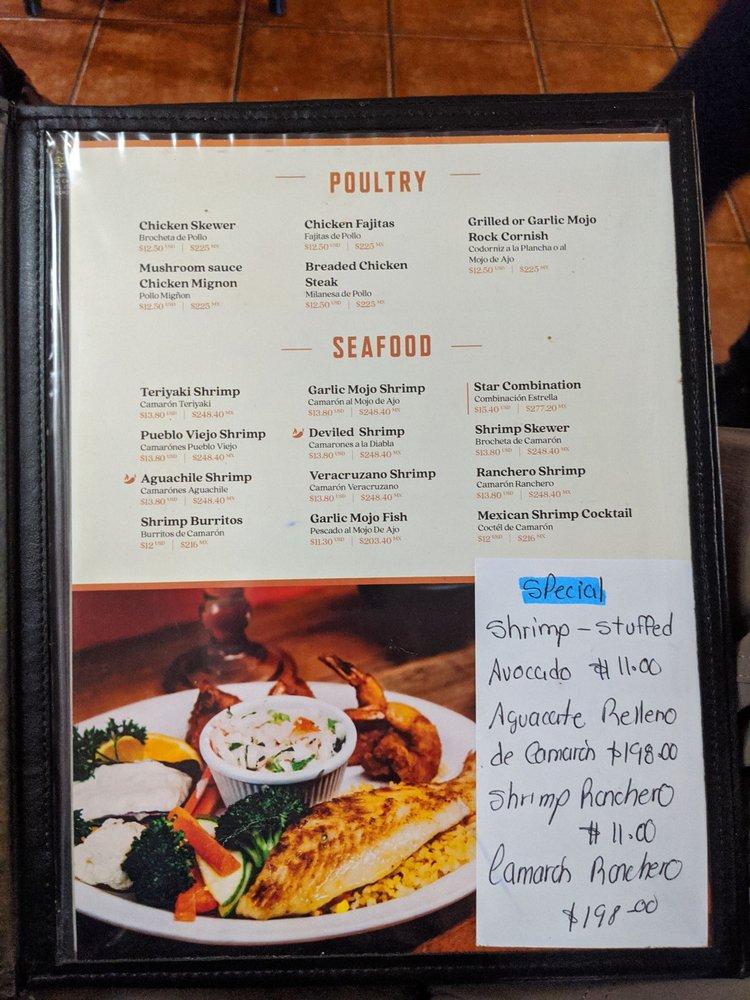 POULTRY
Chicken Skewer
Brocheta de Pollo
$12.50 USD | $225 MX
Mushroom sauce
Chicken Mignon
Pollo Migñon
$12.50 USD | $225 MX
Chicken Fajitas
Fajitas de Pollo
$12.50 USD | $225 MX
Breaded Chicken
Steak
Milanesa de Pollo
$12.50 USD | $225 MX
Grilled or Garlic Mojo
Rock Cornish
Codorniz a la Plancha o al
Mojo de Ajo
$12.50 USD | $225 MX
SEAFOOD
Teriyaki Shrimp
Camarón Teriyaki
$13.80 USD | $248.40 MX
Pueblo Viejo Shrimp
Camarónes Pueblo Viejo
$13.80 USD | $248.40 MX
Aguachile Shrimp
Camarónes Aguachile
$13.80 USD | $248.40 MX
Shrimp Burritos
Burritos de Camarón
$12 USD | $216 MX
Garlic Mojo Shrimp
Camarón al Mojo de Ajo
$13.80 USD | $248.40 MX
Deviled Shrimp
Camarones a la Diabla
$13.80 USD | $248.40 MX
Veracruzano Shrimp
Camarón Veracruzano
$13.80 USD | $248.40 MX
Garlic Mojo Fish
Pescado al Mojo De Ajo
$11.30 USD | $203.40 MX
Star Combination
Combinación Estrella
$15.40 USD | $277.20 MX
Shrimp Skewer
Brocheta de Camarón
$13.80 USD | $248.40 MX
Ranchero Shrimp
Camarón Ranchero
$13.80 USD | $248.40 MX
Mexican Shrimp Cocktail
Coctél de Camarón
$12 USD | $216 MX
Special
Shrimp - Stuffed
Avocado $11.00
Aguacate Relleno
de Camarón $198.00
Shrimp Ranchero
$11.00
Camarón Ranchero
$198.00